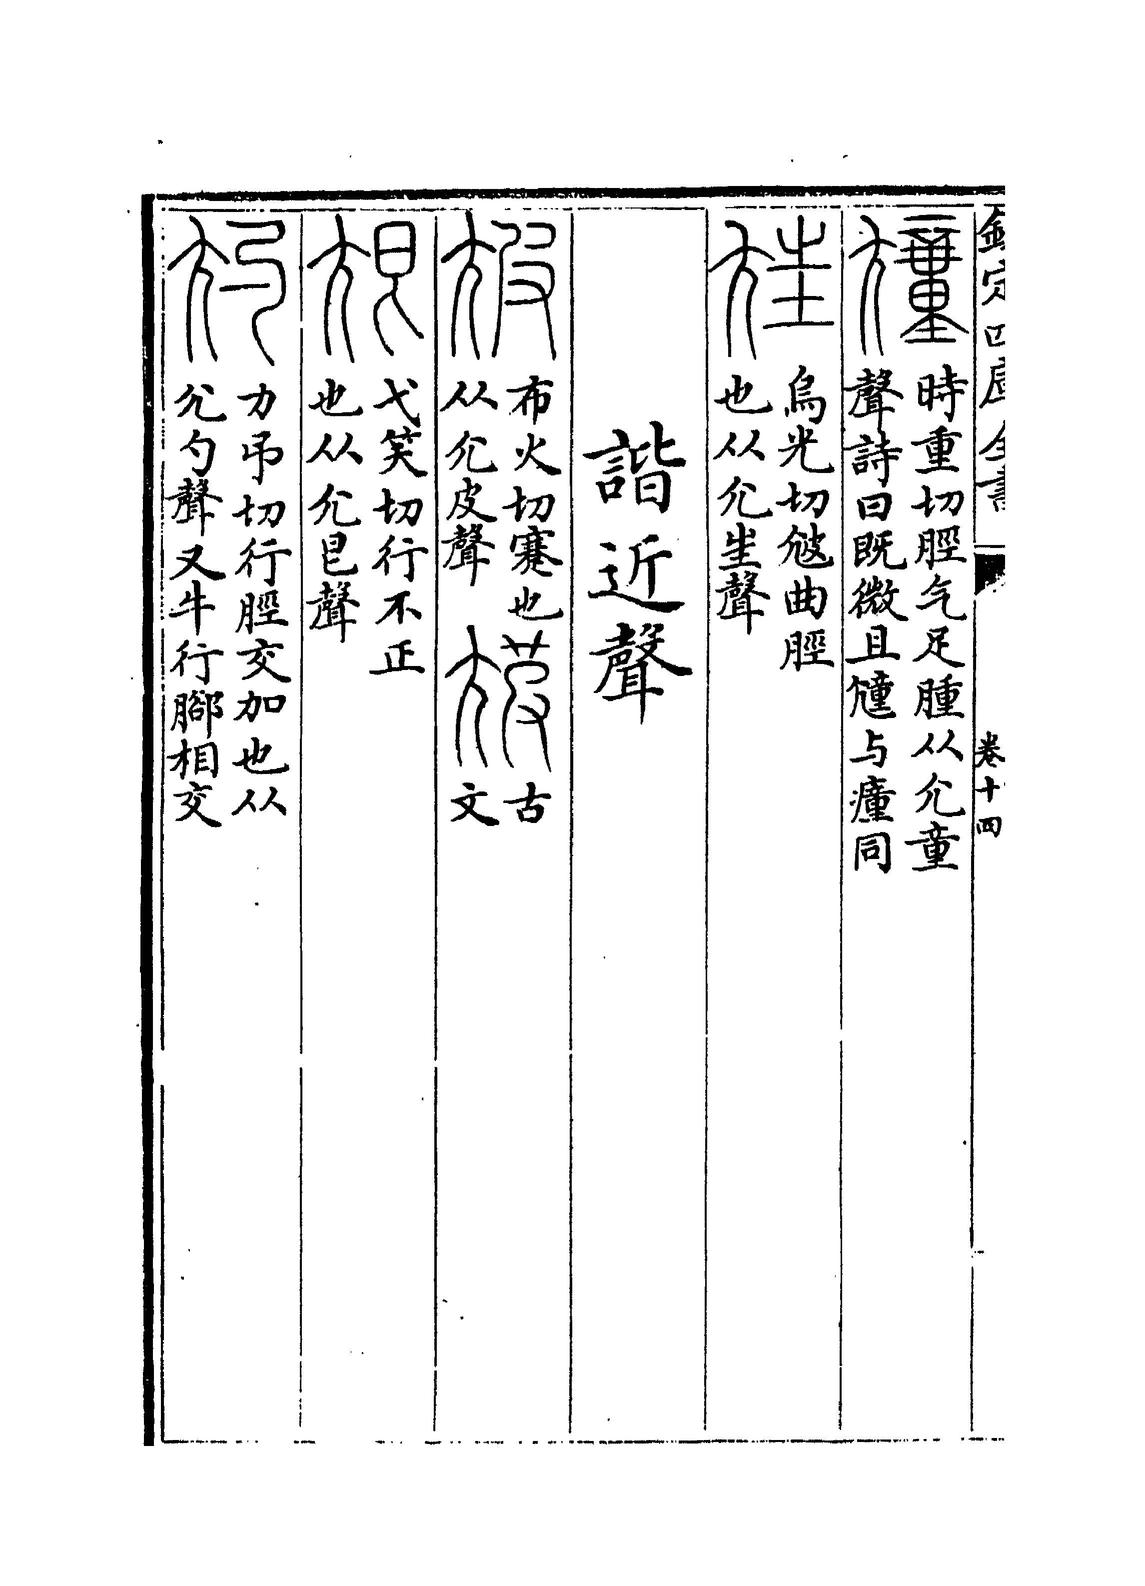 欽定四庫全書
卷十四
時重切脛气足腫从尣童
聲詩曰既微且尰与瘇同
烏光切尳曲脛
也从尣㞷聲
諧近聲
布火切蹇也
从尣皮聲
古
文
弋笑切行不正
也从尣皀聲
力弔切行脛交加也从
尣勺聲又牛行腳相交